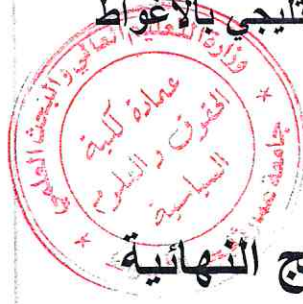 ثليجي بالأغواط
وزارة التعليم العالي والبحث العلمي
عمادة كلية
الحقوق و العلوم
السياسية
جامعة
ج النهائية